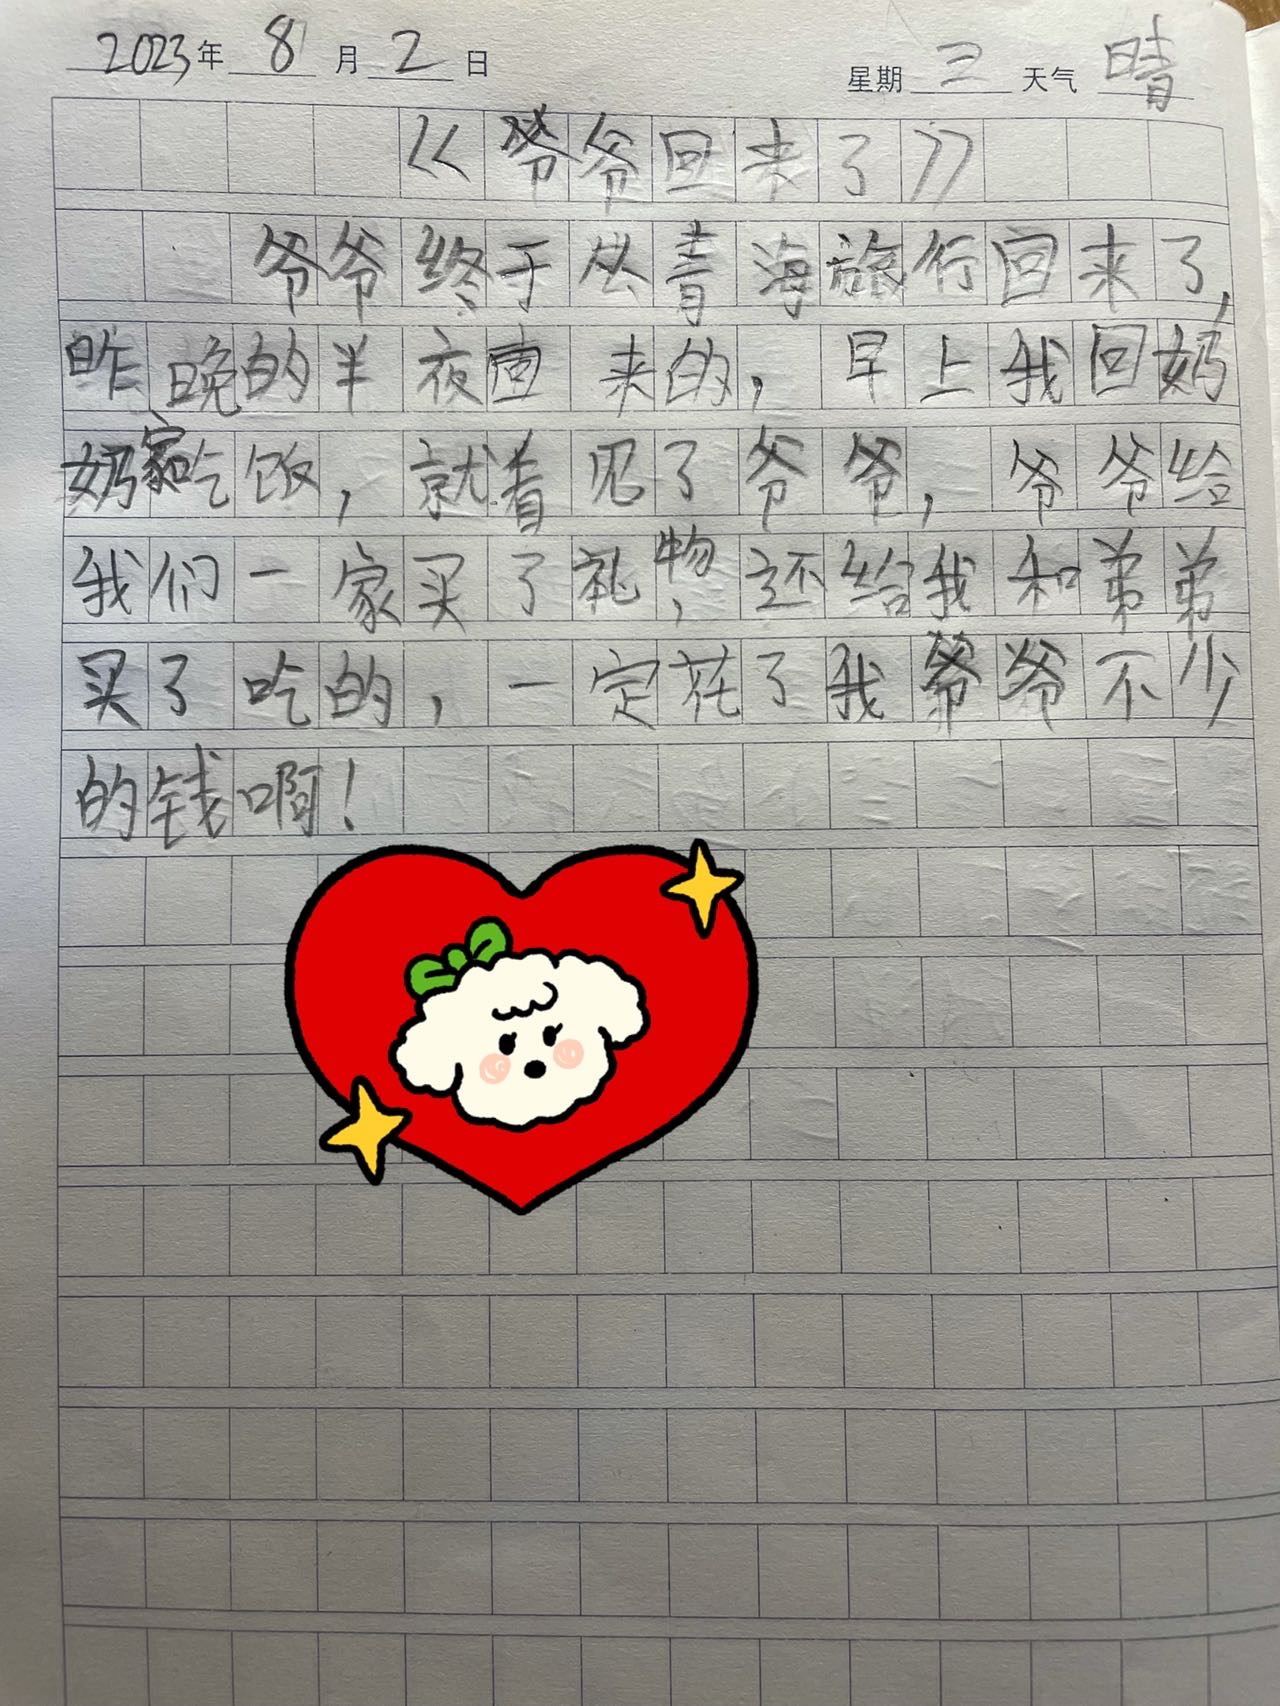 2023年 8月 2日 星期 三 天气 晴
《爷爷回来了》
爷爷终于从青海旅行回来了,
昨晚的半夜回来的,早上我回奶
奶家吃饭,就着见了爷爷,爷爷给
我们一家买了礼物,还给我和弟弟
买了吃的,一定花了我爷爷不少
的钱啊!